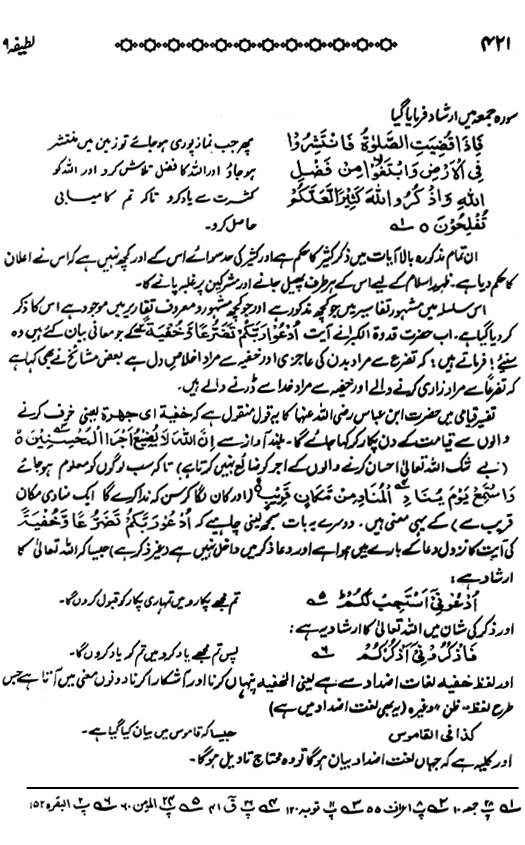 ۴۲۱ لطیفہ ۹
سورہ جمعہ میں ارشاد فرمایا گیا
فَاِذَا قُضِيَتِ الصَّلٰوةُ فَانْتَشِرُوْا پھر جب نماز پوری ہوجائے تو زمین میں منتشر
فِي الْاَرْضِ وَابْتَغُوْا مِنْ فَضْلِ ہوجاؤ اور اللہ کا فضل تلاش کرو اور اللہ کو
اللّٰهِ وَاذْكُرُوا اللّٰهَ كَثِيْرًا لَّعَلَّكُمْ کثرت سے یاد کرو تاکہ تم کامیابی
تُفْلِحُوْنَ ۵ ۱ حاصل کرو۔
ان تمام مذکورہ بالا آیات میں ذکر کثیر کا حکم ہے اور کثیر کی حد سوائے اس کے اور کچھ نہیں ہے کہ اس نے اعلان
کا حکم دیا ہے۔ ظہور اسلام کے لیے اس کے ہر طرف پھیل جانے اور مشرکین پر غلبہ پانے کا۔
اس سلسلہ میں مشہور تفاسیر میں جو کچھ مذکور ہے اور جو کچھ مشہور و معروف تقاریر میں موجود ہے اس کا ذکر
کردیا گیا ہے۔ اب حضرت قدوۃ الکبرا نے آیت اُدْعُوْا رَبَّكُمْ تَضَرُّعًا وَّخُفْيَةً کے جو معانی بیان کئے ہیں وہ
سنیئے! فرماتے ہیں: کہ تضرع سے مراد بدن کی عاجزی اور خفیہ سے مراد اخلاص دل ہے بعض مشائخ نے بھی کہا ہے
کہ تضرعاً سے مراد زاری کرنے والے اور خفیہ سے مراد خدا سے ڈرنے والے ہیں۔
تفسیر میں حضرت ابن عباس رضی اللہ عنہما کا یہ قول منقول ہے کہ خفیۃ ای جهرة یعنی خوف کرنے
والوں سے قیامت کے دن پکار کر کہا جائے گا۔ بلند آواز سے اِنَّ اللّٰهَ لَا يُضِيْعُ اَجْرَ الْمُحْسِنِيْنَ ۵
(بے شک اللہ تعالیٰ احسان کرنے والوں کے اجر کو ضائع نہیں کرتا ہے) تاکہ سب لوگوں کو معلوم ہوجائے
وَاسْتَمِعْ يَوْمَ يُنَادِ الْمُنَادِ مِنْ مَّكَانٍ قَرِيْبٍ (اور کان لگا کر سن کہ ندا کرے گا ایک منادی مکان
قریب سے) کے یہی معنی ہیں۔ دوسرے یہ بات سمجھنی چاہیے کہ اُدْعُوْا رَبَّكُمْ تَضَرُّعًا وَّخُفْيَةً
کی آیت کا نزول دعا کے بارے میں ہوا ہے اور دعا ذکر میں داخل نہیں ہے (غیر ذکر ہے) جیسا کہ اللہ تعالیٰ کا
ارشاد ہے:
اُدْعُوْنِيْ اَسْتَجِبْ لَكُمْ ۵ تم مجھے پکارو میں تمہاری پکار کو قبول کروں گا۔
اور ذکر کی شان میں اللہ تعالیٰ کا ارشاد یہ ہے:
فَاذْكُرُوْنِيْ اَذْكُرْكُمْ ۶ پس تم مجھے یاد کرو میں تم کو یاد کروں گا۔
اور لفظ خفیہ لغات اضداد سے ہے یعنی الخفیہ پنہاں کرنا اور آشکارا کرنا دونوں معنی میں آتا ہے جس
طرح لفظ "ظن" وغیرہ (یہ بھی لغت اضداد میں ہے)
کذا فی القاموس جیسا کہ قاموس میں بیان کیا گیا ہے۔
اور کلیہ ہے کہ جہاں لغت اضداد بیان ہوگا تو وہ محتاج تاویل ہوگا۔
۱ پ ۲۸ جمعہ ۱۰ ۲ پ ۸ اعراف ۵۵ ۳ پ ۱۱ توبہ ۱۲۰ ۴ پ ۲۶ قٓ ۴۱ ۵ پ ۲۴ المومن ۶۰ ۶ پ ۲ البقرہ ۱۵۲